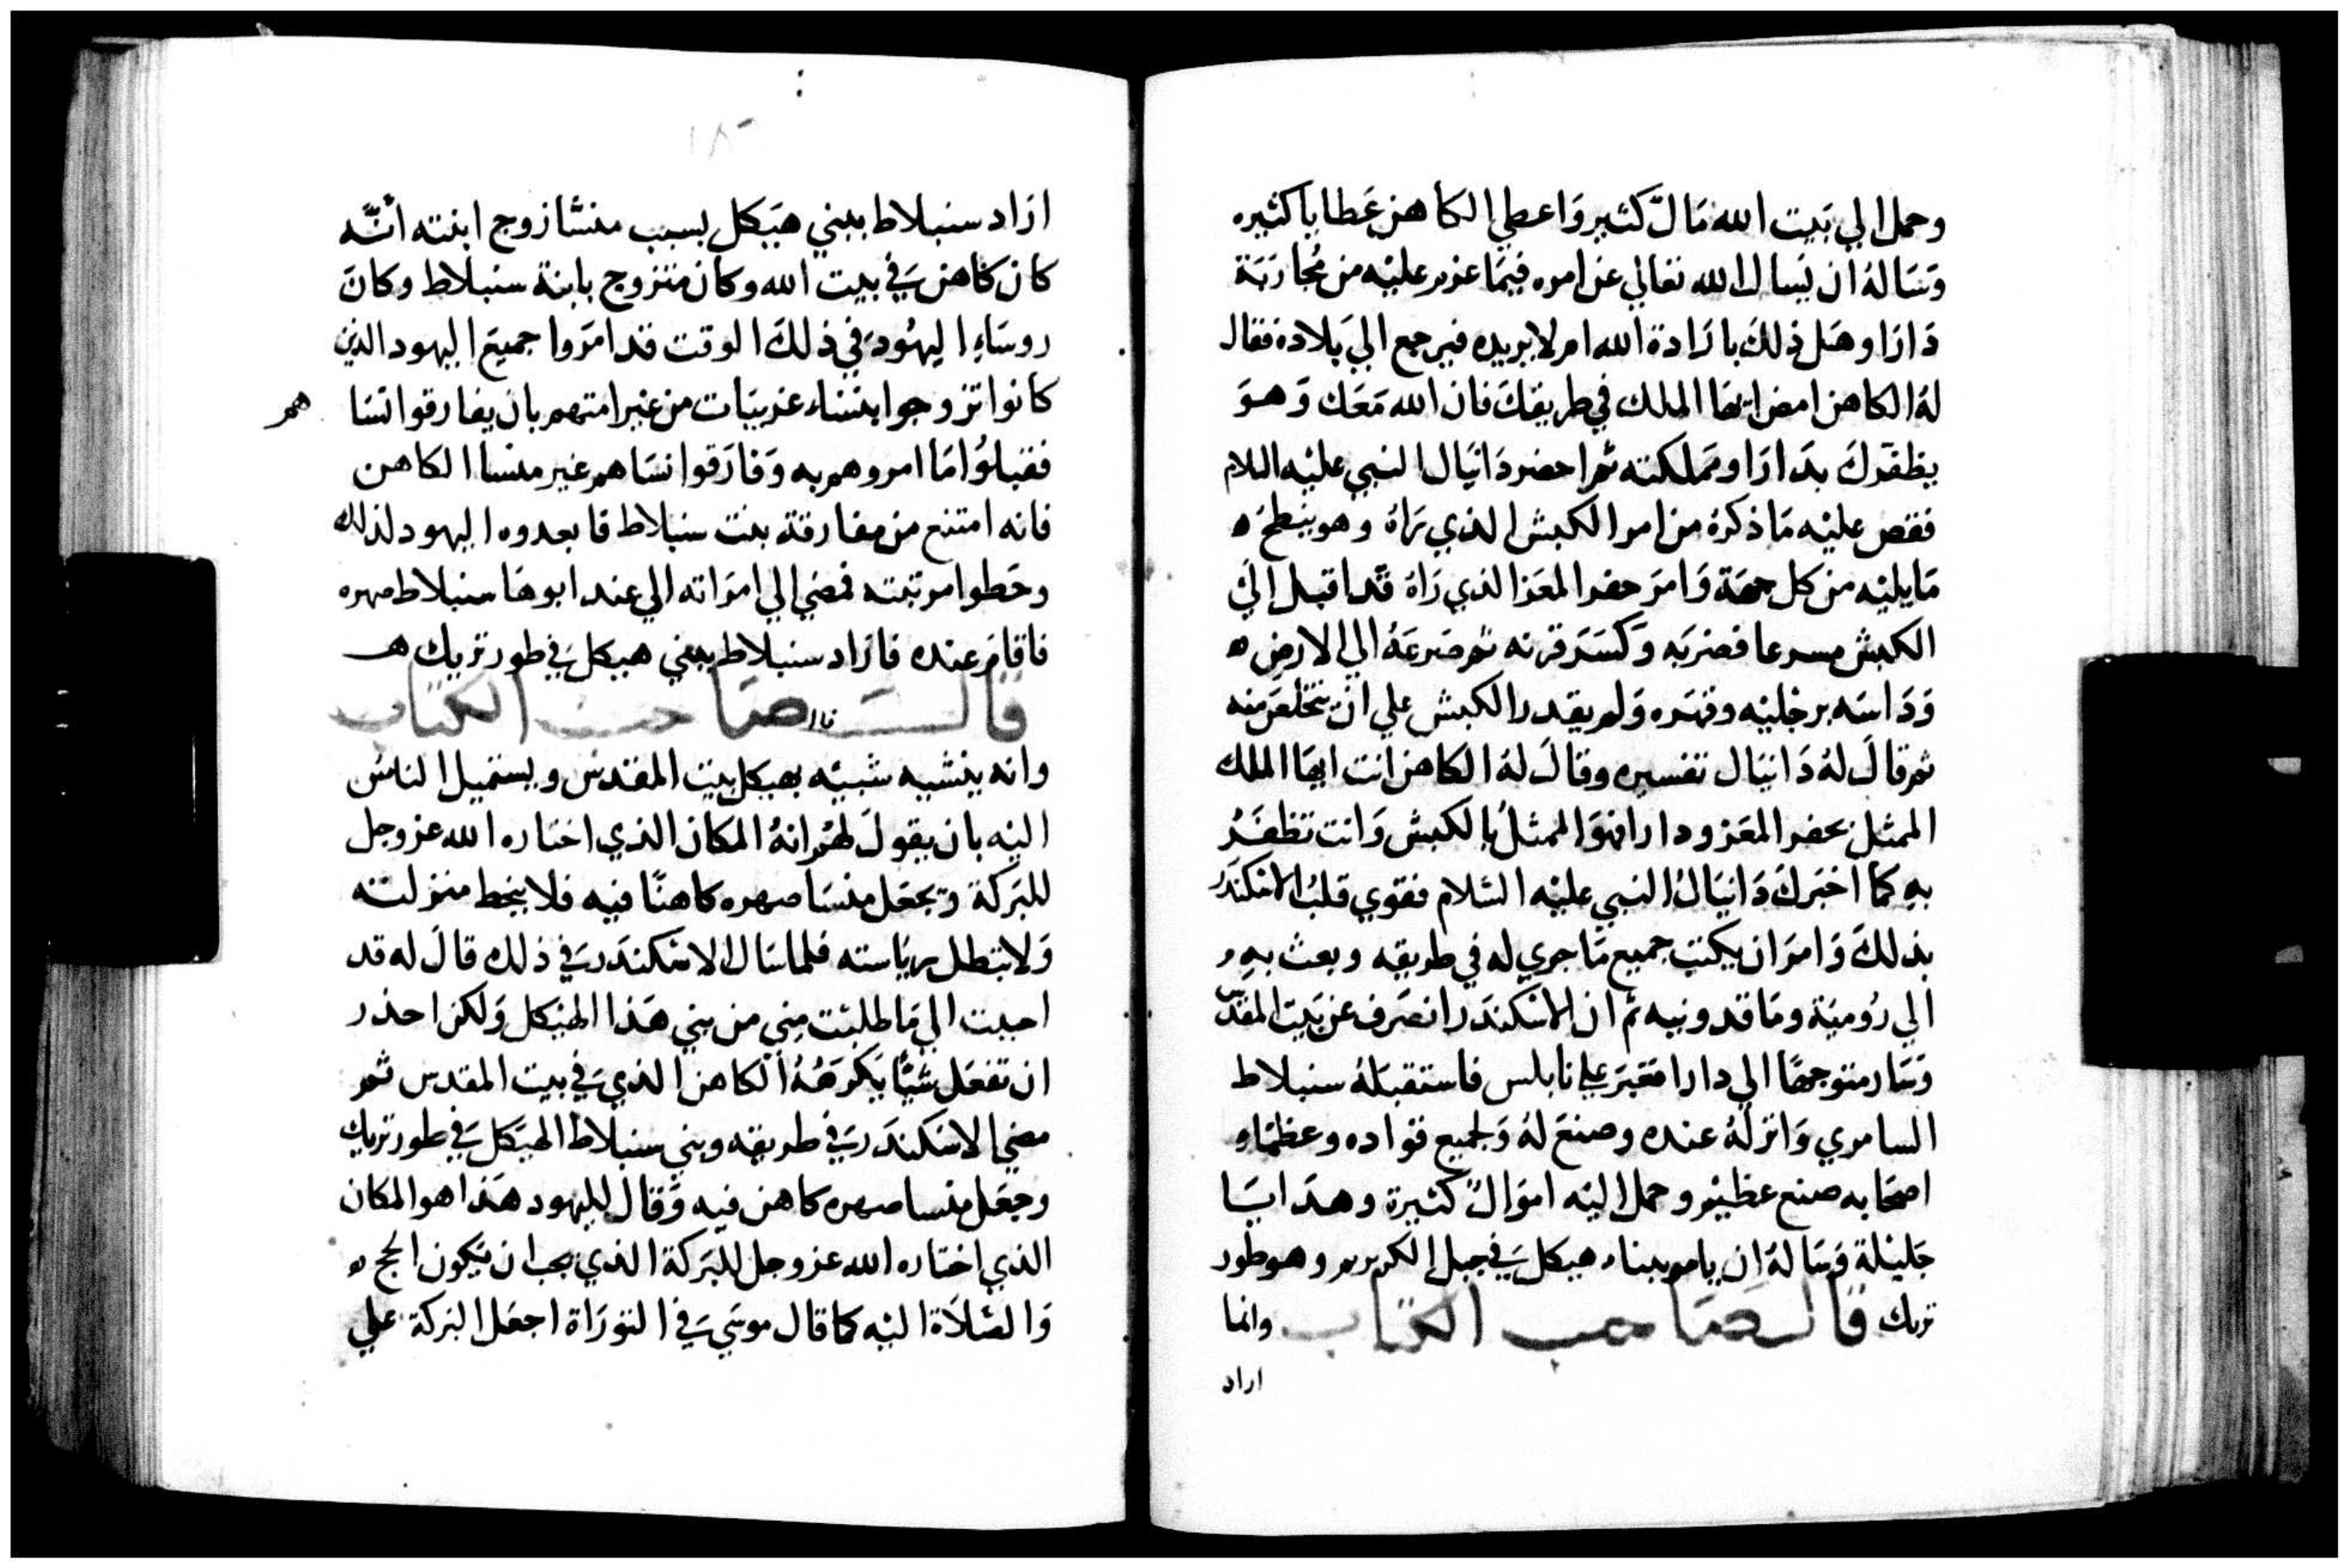 وحمل الي بيت الله مال كثير واعطي الكاهن عطايا كثيره
وساله ان يسال الله تعالي عن امره فيما عزم عليه من محاربة
دارا وهل ذلك بارادة الله ام لا يريده فيرجع الي بلاده فقال
له الكاهن امض ايها الملك في طريقك فان الله معك وهو
يظفرك بدارا ومملكته ثم احضر دانيال النبي عليه السلام
فقص عليه ما ذكره من امر الكبش الذي راه وهو ينطح
ما يليه من كل جهة وامر جفر المعز الذي راه قد اقبل الي
الكبش مسرعا فضربه وكسر قرنه ثم صرعه الي الارض
وداسه برجليه وقهره ولم يقدر الكبش علي ان يتخلص منه
ثم قال له دانيال تفسيره وقال له الكاهن انت ايها الملك
الممثل بجفر المعز ودارا فهو الممثل بالكبش وانت تظفر
به كما اخبرك دانيال النبي عليه السلام فقوي قلب الاسكندر
بذلك وامر ان يكتب جميع ما جري له في طريقه وبعث به
الي رومية وماقدونيه ثم ان الاسكندر انصرف عن بيت المقدس
وسار متوجها الي دارا فعبر علي نابلس فاستقبله سنبلاط
السامري وانزله عنده وصنع له ولجميع قواده وعظماء
اصحابه صنع عظيم وحمل اليه اموال كثيرة وهدايا
جليلة وساله ان يامر ببناء هيكل في جبل الكريزم وهو طور
تربك قال صاحب الكتاب وانما
اراد
١٨٠
اراد سنبلاط يبني هيكل بسبب منشا زوج ابنته انه
كان كاهن في بيت الله وكان متزوج بابنة سنبلاط وكان
روساء اليهود في ذلك الوقت قد امروا جميع اليهود الذين
كانوا تزوجوا بنساء غريبات من غير امتهم بان يفارقوا نسا هم
فقبلوا ما امروهم به وفارقوا نساهم غير منسا الكاهن
فانه امتنع من مفارقة بنت سنبلاط فابعدوه اليهود لذلك
وحطوا مرتبته فمضي الي امراته الي عند ابوها سنبلاط صهره
فاقام عنده فاراد سنبلاط يبني هيكل في طور تربك هـ
قال صاحب الكتاب
وانه ينشيه شبيه بهيكل بيت المقدس ويستميل الناس
اليه بان يقول لهم انه المكان الذي اختاره الله عز وجل
للبركة ويجعل منسا صهره كاهنا فيه فلا ينحط منزلته
ولا تبطل رياسته فلما سال الاسكندر في ذلك قال له قد
اجبت الي ما طلبت مني من بني هذا الهيكل ولكن احذر
ان تفعل شيا يكرهه الكاهن الذي في بيت المقدس ثم
مضي الاسكندر في طريقه وبني سنبلاط الهيكل في طور تربك
وجعل منسا صهره كاهن فيه وقال لليهود هذا هو المكان
الذي اختاره الله عز وجل للبركة الذي يجب ان يكون الحج
والصلاة اليه كما قال موسي في التوراة اجعل البركة علي